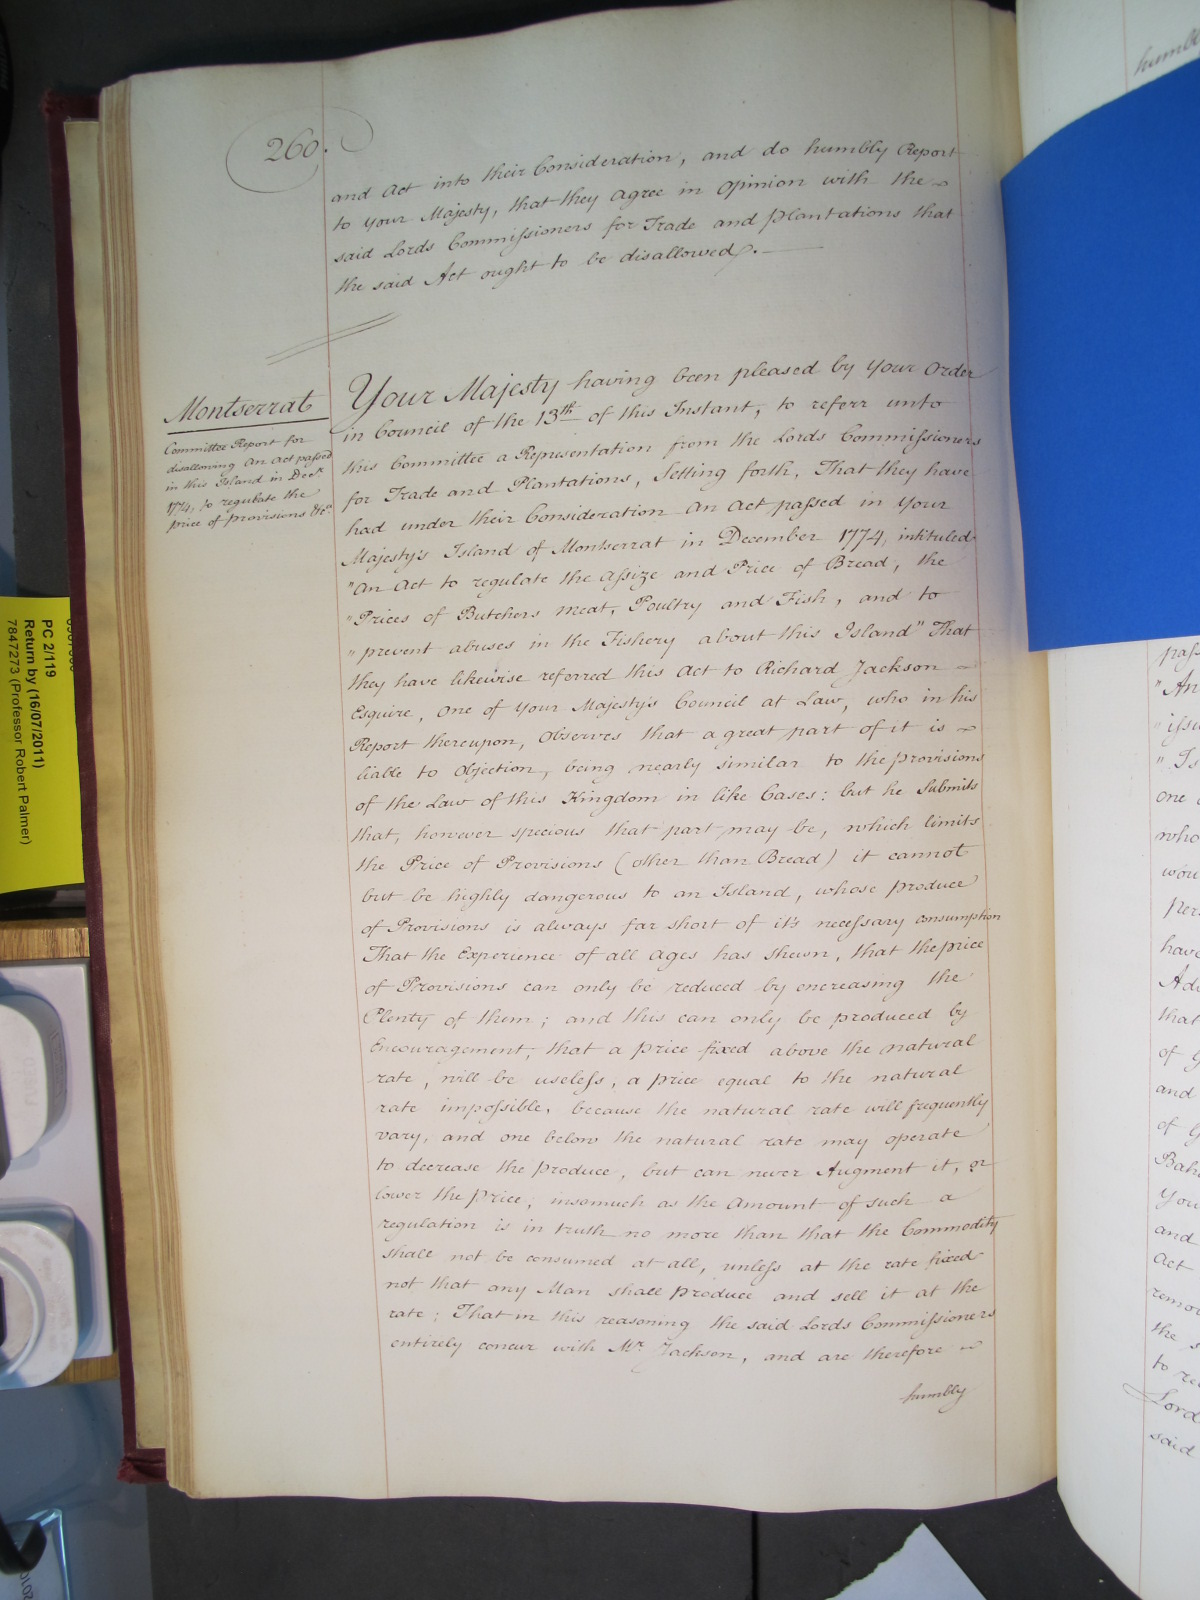 260.
and Act into their Consideration, and do humbly Report
to Your Majesty, that they agree in Opinion with the
said Lords Commissioners for Trade and Plantations that
the said Act ought to be disallowed.
Montserrat
Committee Report for
disallowing an Act passed
in this Island in Decr.
1774, to regulate the
price of provisions &ca.
Your Majesty having been pleased by Your Order
in Council of the 13th of this Instant, to referr unto
this Committee a Representation from the Lords Commissioners
for Trade and Plantations, Setting forth, That they have
had under their Consideration an Act passed in Your
Majesty's Island of Montserrat in December 1774, intituled
"An Act to regulate the Assize and Price of Bread, the
"Prices of Butchers meat, Poultry and Fish, and to
"prevent abuses in the Fishery about this Island" That
they have likewise referred this Act to Richard Jackson
Esquire, One of Your Majesty's Council at Law, who in his
Report thereupon, Observes that a great part of it is
liable to Objection, being nearly similar to the provisions
of the Law of this Kingdom in like Cases: but he Submits
that, however specious that part may be, which limits
the Price of Provisions (other than Bread) it cannot
but be highly dangerous to an Island, whose produce
of Provisions is always far short of it's necessary consumption
That the Experience of all Ages has shewn, that the price
of Provisions can only be reduced by encreasing the
Plenty of them; and this can only be produced by
Encouragement; that a price fixed above the natural
rate, will be useless, a price equal to the natural
rate impossible, because the natural rate will frequently
vary, and one below the natural rate may operate
to decrease the produce, but can never Augment it, or
lower the price; insomuch as the Amount of such a
regulation is in truth no more than that the Commodity
shall not be consumed at all, unless at the rate fixed
not that any Man shall produce and sell it at the
rate; That in this reasoning the said Lords Commissioners
entirely concur with Mr. Jackson, and are therefore
humbly
PC 2/119
Return by (16/07/2011)
7847273 (Professor Robert Palmer)
humbl
pass
"An
"issu
"Is
one
who
wou
per
have
Ad
that
of G
and
of G
Bah
You
and
Act
remo
the s
to re
Lord
said